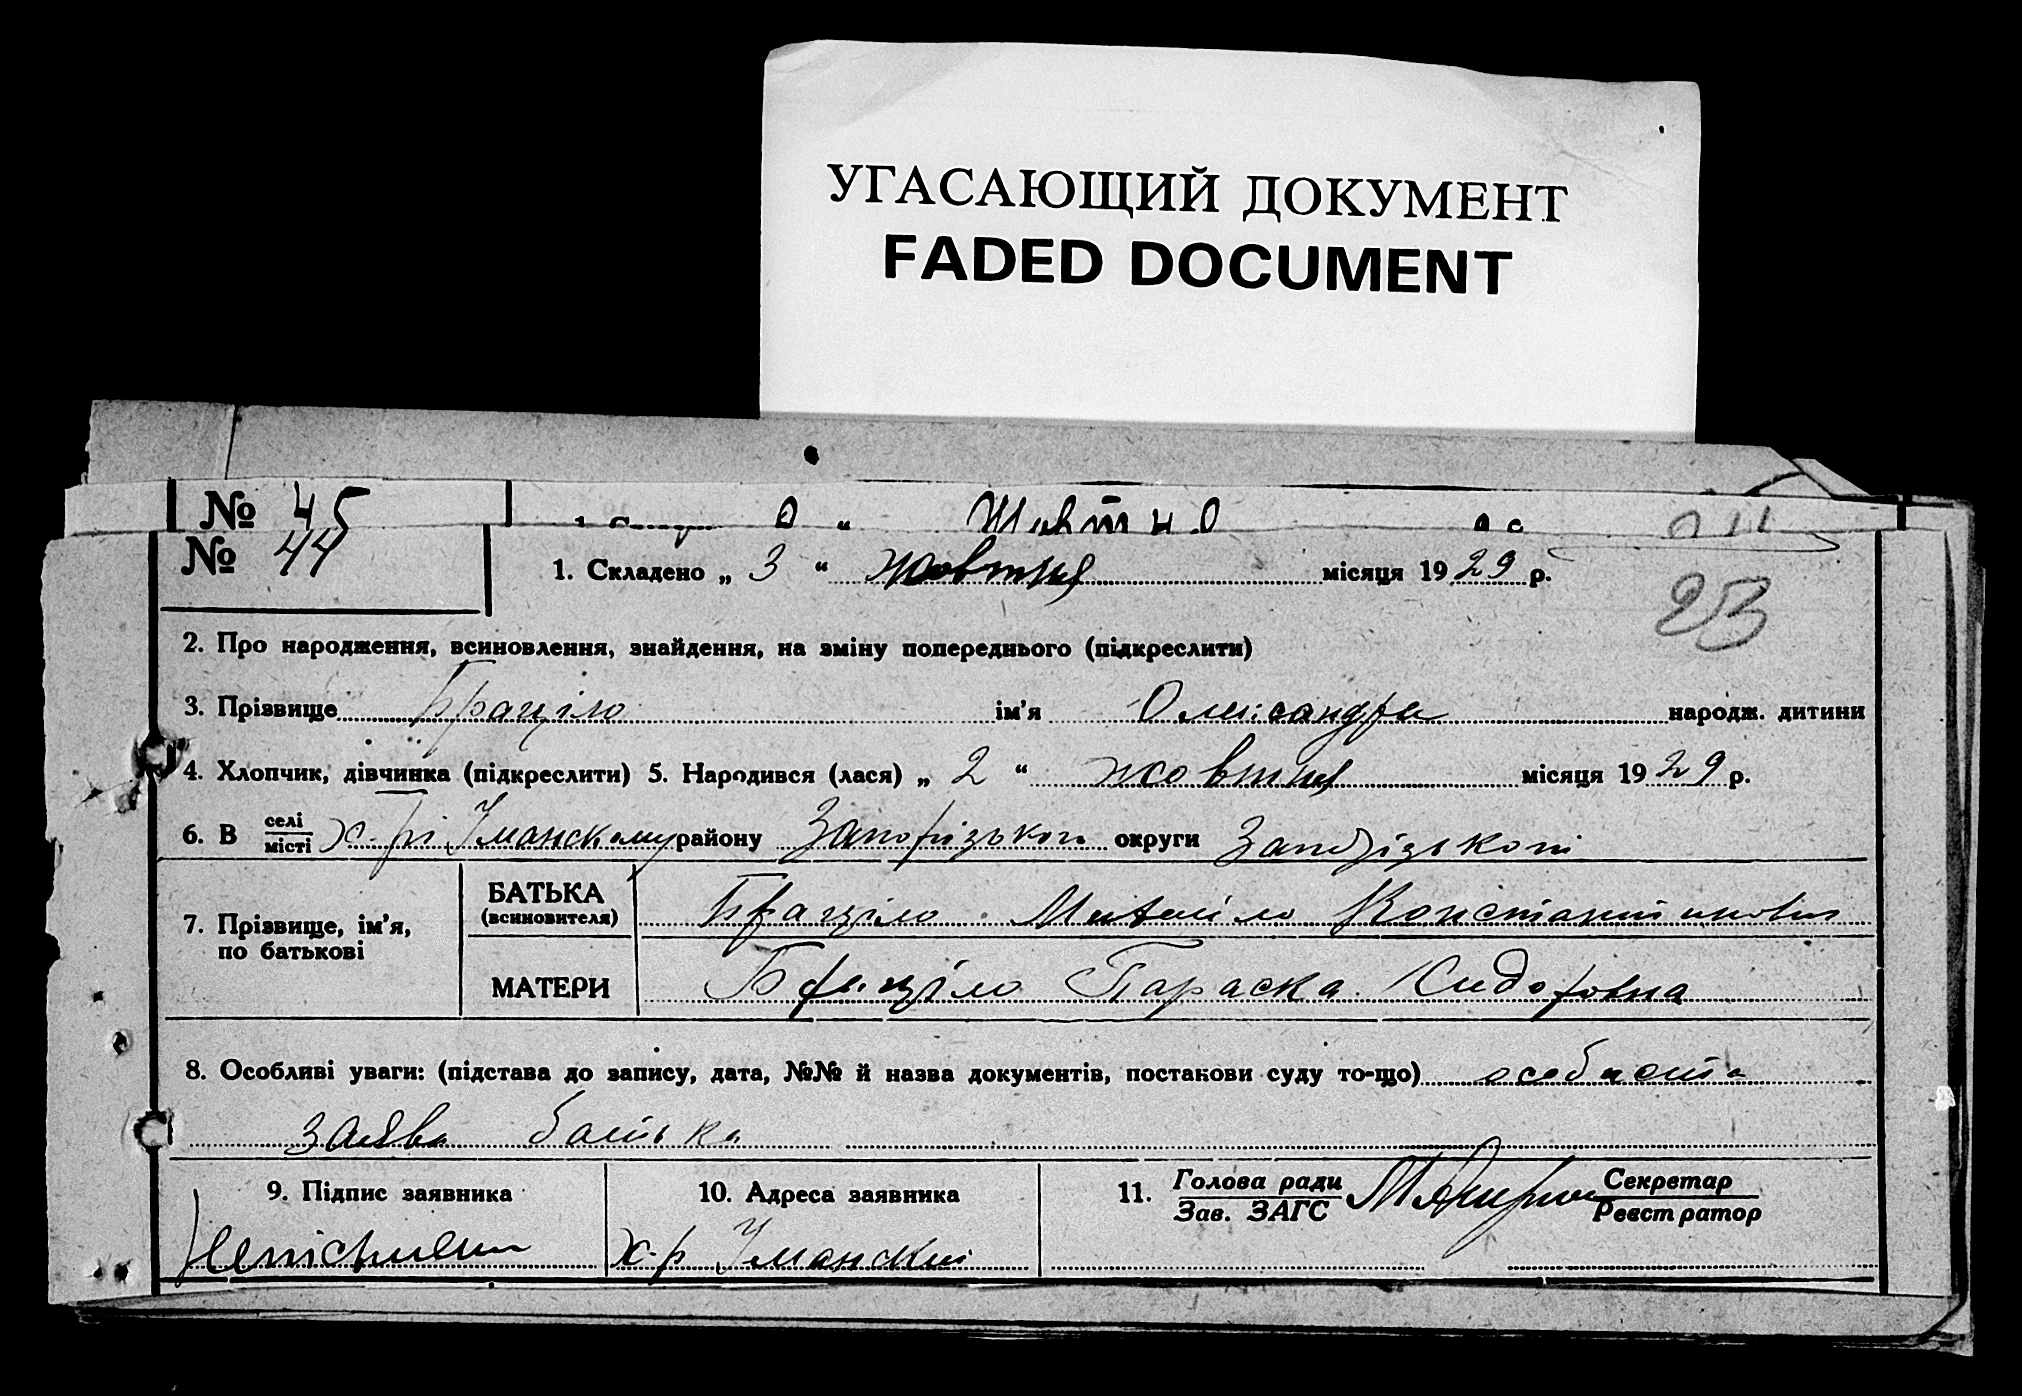 УГАСАЮЩИЙ ДОКУМЕНТ
FADED DOCUMENT
№ 45
№ 44
1. Складено „ 3 “ жовтня місяця 1929 р.
23
2. Про народження, всиновлення, знайдення, на зміну попереднього (підкреслити)
3. Прізвище Браціло ім'я Олександра народж. дитини
4. Хлопчик, дівчинка (підкреслити) 5. Народився (лася) „ 2 “ жовтня місяця 1929 р.
6. В селі/місті х-рі Уманскому району Запорізького округи Запорізької
7. Прізвище, ім'я, по батькові
БАТЬКА (всиновителя) Браціло Михайло Константинович
МАТЕРИ Браціло Параска Сидоровна
8. Особливі уваги: (підстава до запису, дата, №№ й назва документів, постанови суду то-що) особиста
заява батька
9. Підпис заявника
10. Адреса заявника
11. Голова ради/Зав. ЗАГС Секретар/Реєстратор
Неписьмен
х-р Уманский